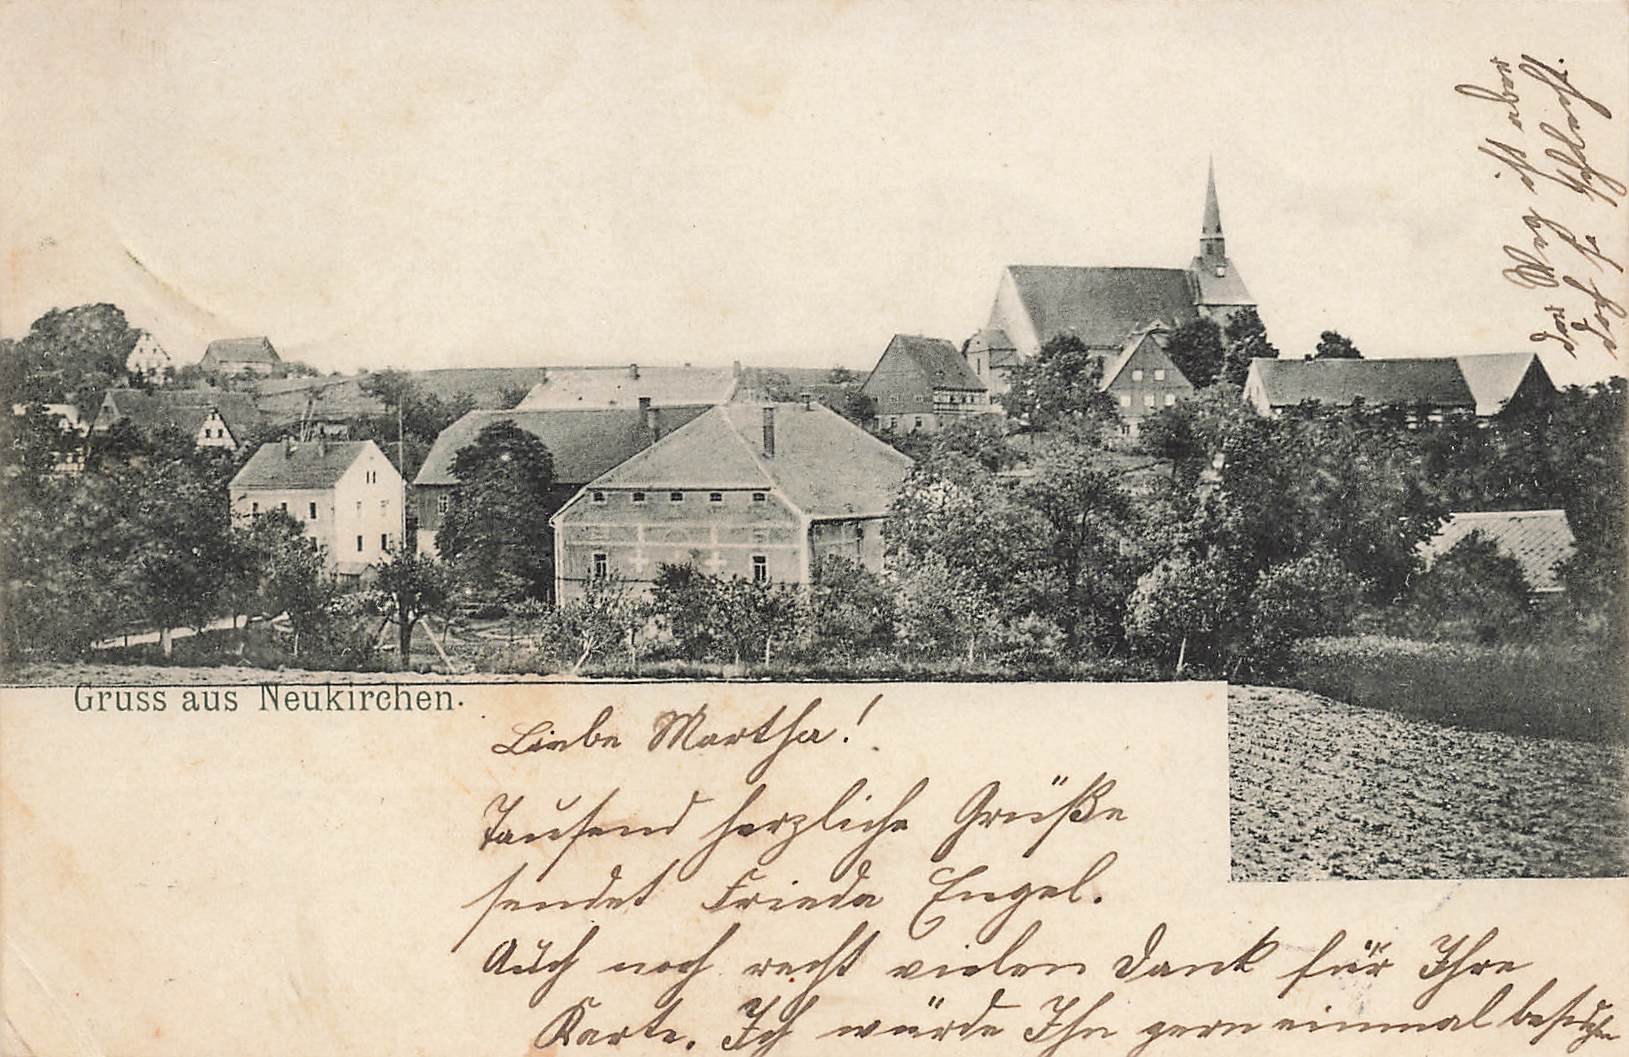 Gruss aus Neukirchen.
Liebe Martha!
Tausend herzliche Grüße
sendet Frieda Engel.
Auch noch recht vielen Dank für Ihre
Karte. Ich würde Ihn gern einmal besuchen